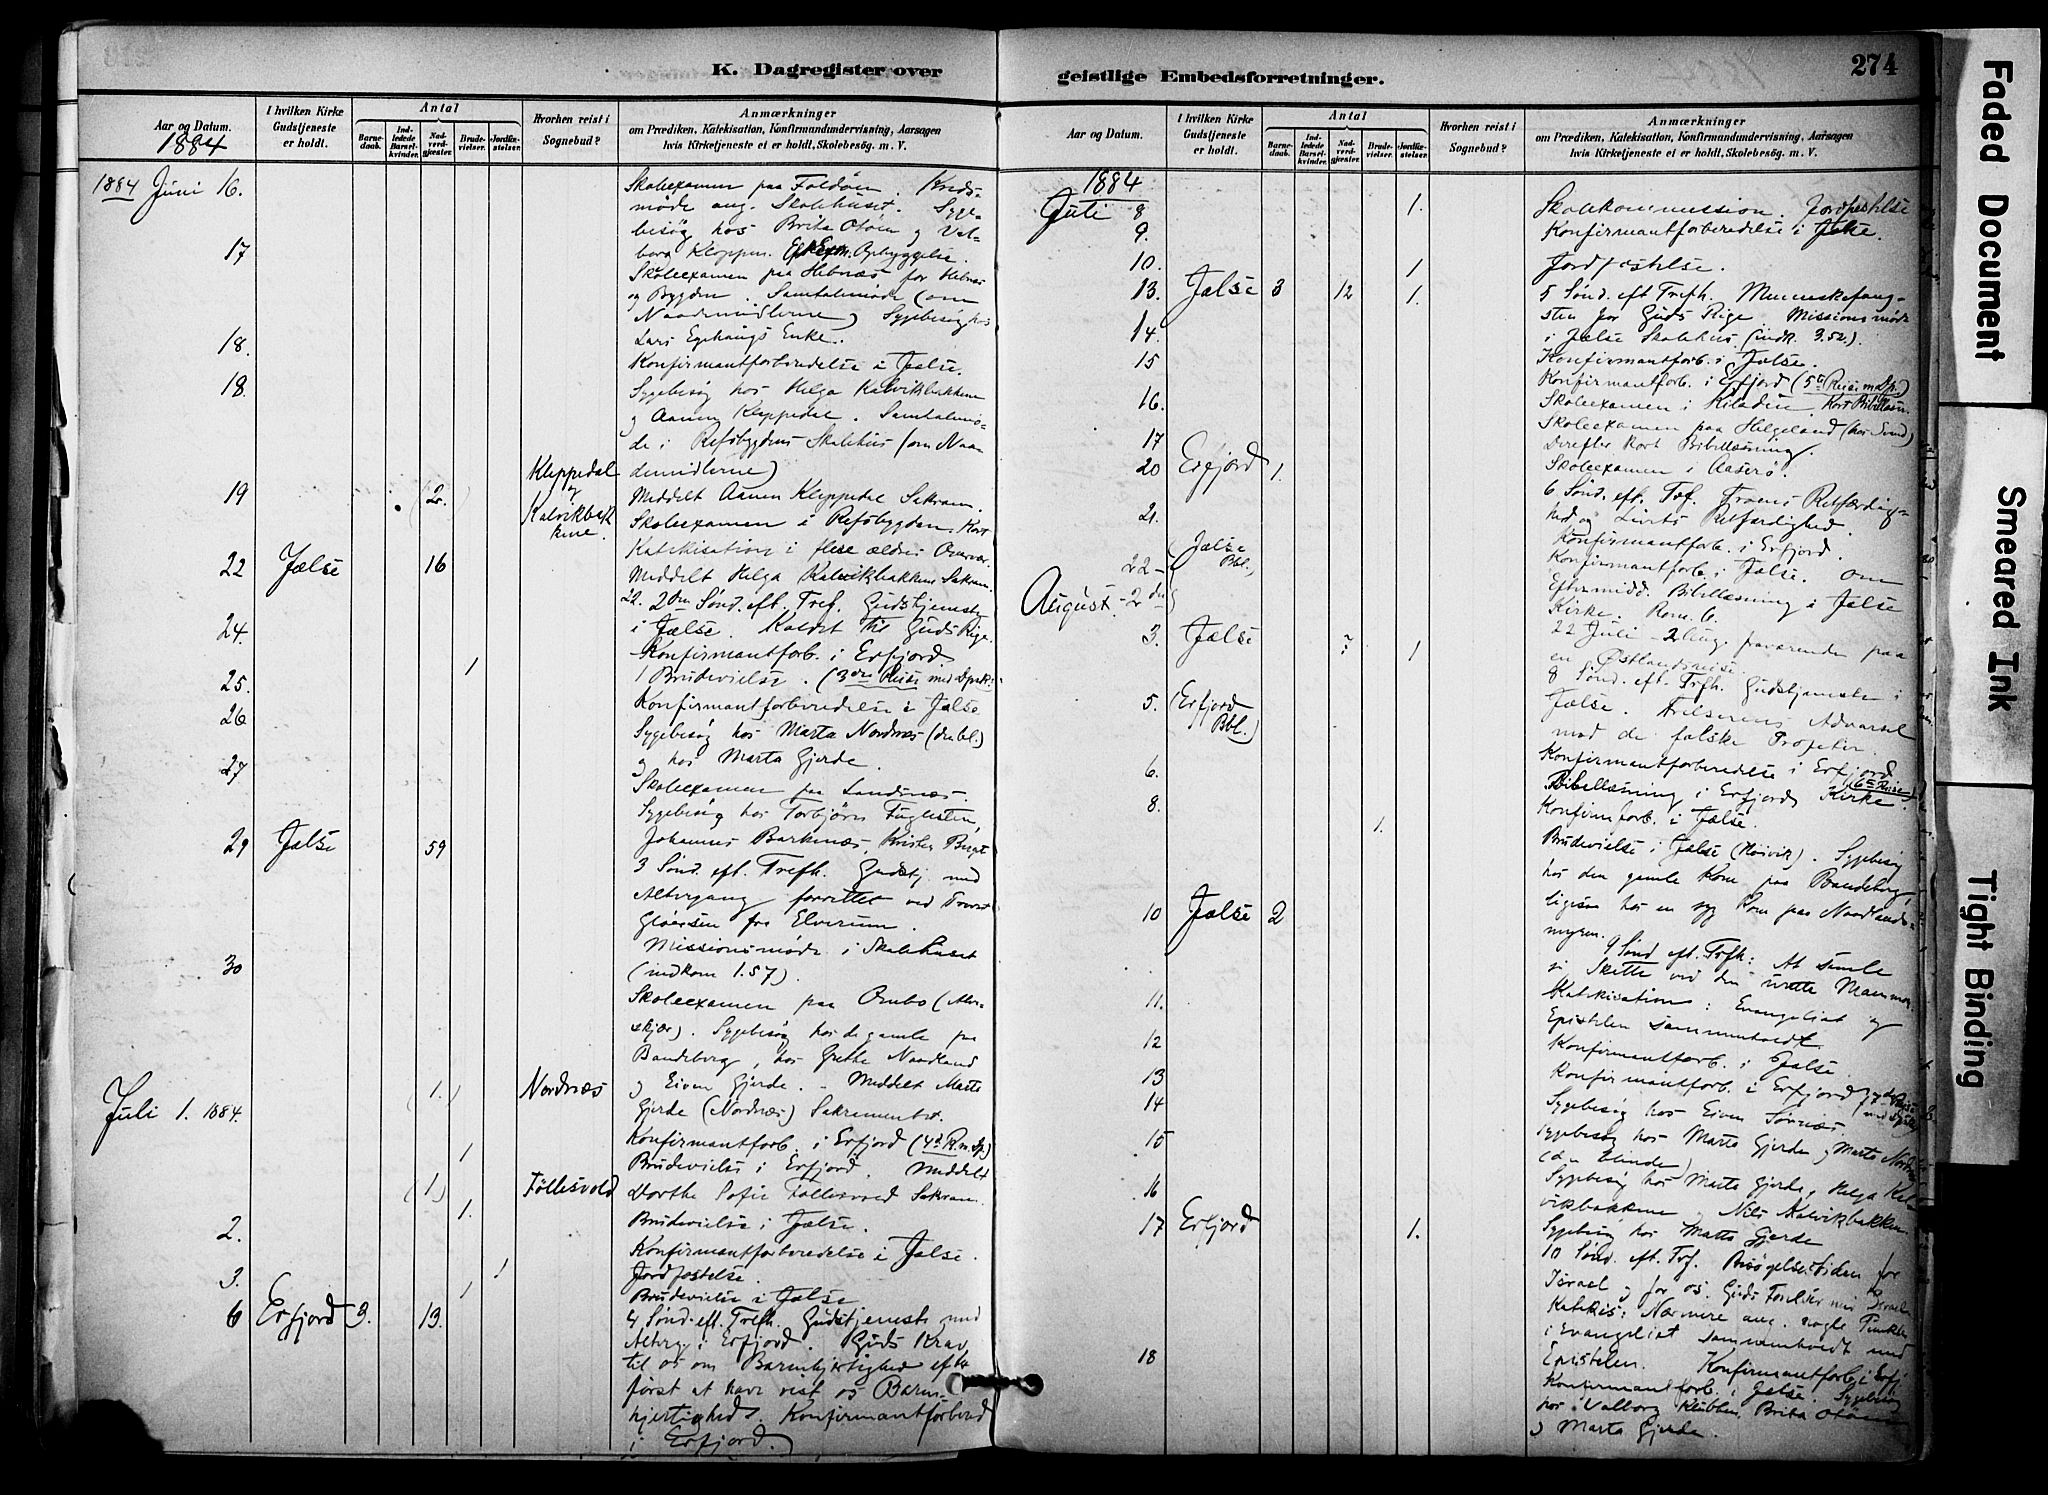 K. Dagregister over
Aar og Datum.
1884
I hvilken Kirke
Gudstjeneste
er holdt.
Antal
Barne-
daab.
Ind-
ledede
Barsel-
kvinder.
Nad-
verd-
gjæster.
Brude-
vielser.
Jordfæ-
stelser.
Hvorhen reist i
Sognebud?
Anmærkninger
om Prædiken, Katekisation, Konfirmandundervisning, Aarsagen
hvis Kirketjeneste ei er holdt, Skolebesøg. m. V.
1884 Juni 16.
Skoleexamen paa Foldøen. Kreds-
møde ang. Skolehuset. Syge-
besøg hos Brita Otøen og Val-
borg Kloppen. Opbyggelse.
17
Skoleexamen paa Hebnæs for Hebnæs
og Bygden. Samtalemøde (om
Naademidlerne) Sygebesøg hos
Lars Egehaugs Enke.
18.
Konfirmantforberedelse i Jælse.
18.
Sygebesøg hos Helga Kalvikbakkene
og Aanen Kleppedal. Samtalemø-
de i Refsbygdens Skolehus (om Naa-
demidlerne)
19 (2.) Kleppedal
og
Kalvikbak
kene.
Meddelt Aanen Kleppedal Sakram.
Skoleexamen i Refsbygden. Kort
Katekisation i flere ældres Overvær.
Meddelt Helga Kalvikbakken Sakram.
22 Jælse 16
22. 2den Sønd. eft. Tref. Gudstjeneste
i Jælse. Kaldet til Guds Rige.
24.
Konfirmantforb. i Erfjord.
1
1 Brudevielse. (3die Reise med Dpsk.)
25.
Konfirmantforberedelse i Jælse
26
Sygebesøg hos Marta Nordnæs (den bl.)
og hos Marta Gjerde.
27
Skoleexamen paa Landsnæs
Sygebesøg hos Torbjørn Fuglesten,
Johannes Barkenæs, Krister Berge
29 Jælse 59
3 Sønd. eft. Trefh. Gudstj med
Altergang forrettet ved Provst
Gløersen fra Elverum.
Missionsmøde i Skolehuset
(indkom 1.57).
30
Skoleexamen paa Ombo (Atter-
skjær). Sygebesøg hos de gamle paa
Bandeberg, hos Grethe Naadland
og Eiven Gjerde. - Meddelt Marta
(1.) Nordnæs
Gjerde (Nordnæs) Sakramentet.
Juli 1. 1884.
Konfirmantforb. i Erfjord (4de R. m. Dp.)
1
Brudevielse i Erfjord. Meddelt
(1) Follesvold
Dorthe Sofie Follesvold Sakram.
1.
Brudevielse i Jælse.
2.
Konfirmantforberedelse i Jælse.
1
Jordfæstelse.
3. 1
Brudevielse i Jælse
6 Erfjord 3. 13.
4 Sønd. eft. Trefh. Gudstjeneste med
Alterg. i Erfjord. Guds Krav
til os om Barmhjertighed efter
først at have vist os Barm-
hjertighed. Konfirmantforbered
i Erfjord.
geistlige Embedsforretninger.
274
Aar og Datum.
I hvilken Kirke
Gudstjeneste
er holdt.
Antal
Barne-
daab.
Ind-
ledede
Barsel-
kvinder.
Nad-
verd-
gjæster.
Brude-
vielser.
Jordfæ-
stelser.
Hvorhen reist i
Sognebud?
Anmærkninger
om Prædiken, Katekisation, Konfirmandundervisning, Aarsagen
hvis Kirketjeneste ei er holdt, Skolebesøg. m. V.
1884
Juli 8 1.
Skolekommission. Jordfæstelse
9.
Konfirmantforberedelse i Jælse.
10. 1
Jordfæstelse.
13. Jælse 3 12 1.
5 Sønd. eft Trefh. Menneskefang-
sten for Guds Rige. Missionsmøde
i Jælse Skolehus (indk. 3.52).
14.
Konfirmantforb. i Jælse.
15
Konfirmantforb. i Erfjord (5te Reise m Dp.)
16.
Skoleexamen i Kiladæn. Kort Bibellæsn.
17
Skoleexamen paa Helgeland (hos Svend)
Derefter kort Bibellæsning.
Skoleexamen i Aaserø.
20 Erfjord 1.
6 Sønd. eft. Tref. Troens Retfærdig-
hed og Livets Retfærdighed.
21.
Konfirmantforb. i Erfjord.
(Jælse
Bbl.)
Konfirmantforb. i Jælse. Om
Eftermidd. Bibellæsning i Jælse
Kirke. Rom. 6.
22 -
August - 2den
22 Juli - 2 Aug. fraværende paa
en Østlandsreise
3. Jælse ? 1
8 Sønd. eft. Trfh. Gudstjeneste i
Jælse. Frelserens Advarsel
mod de falske Profeter.
5. (Erfjord
Bbl.)
Konfirmantforberedelse i Erfjord
(6te Reise)
Bibellæsning i Erfjords Kirke
6.
Konfirmforb. i Jælse.
8. 1.
Brudevielse i Jælse (Høivik). Sygebesøg
hos den gamle Kone paa Bandeberg,
ligesaa hos en syg Kone paa Naadlands-
myren.
10 Jælse 2
9 Sønd eft. Trfh: At samle
Skatte ved den urette Mammon
Katekisation: Evangeliet og
Epistelen sammenholdt.
11.
Konfirmantforb. i Jælse.
12
Konfirmantforb. i Erfjord (7de Reise
med Dpsk.)
13
Sygebesøg hos Eiven Tornæs
14
Sygebesøg hos Marta Gjerde og Marta Nordnæs
(den blinde)
15
Sygebesøg hos Marta Gjerde, Helga Kal-
vikbakkene og Nils Kalvikbakken
16
Sygebesøg hos Marta Gjerde
17 Erfjord 1.
10 Sønd. eft. Tref. Besøgelsestiden for
Israel og for os. Guds Følelser mod Israel
Katekis: Nærmere ang. nogle Punkter
i Evangeliet sammenholdt med
Epistelen. Konfirmantforb. i Erfj.
18
Konfirmantforb. i Jælse. Sygebesøg
hos Valborg Klubben, Brita Otøen
og Marta Gjerde.
Faded Document
Smeared Ink
Tight Binding